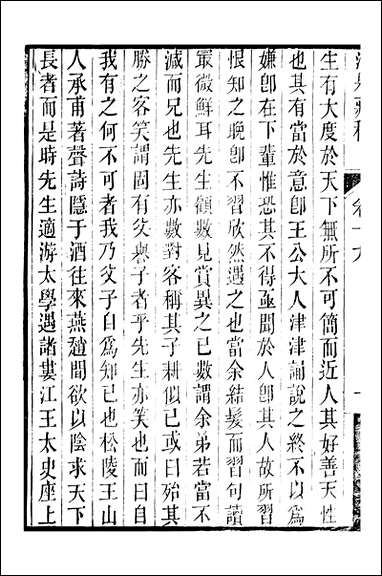 卷十九
生有大度於天下無所不可簡而近人其好善天性
也其有當於意卽王公大人津津誦說之終不以爲
嫌卽在下輩惟恐其不得亟聞於人卽其人故所習
恨知之晚卽不習欣然遇之也當余結髮而習句讀
最微鮮耳先生顧數見賞異之已數謂余弟若當不
減而兄也先生亦數對客稱其子耕似已或曰殆其
勝之客笑謂固有父譽子者乎先生亦笑也而曰自
我有之何不可者我乃父子自爲知已也松陵王山
人承甫著聲詩隱于酒往來燕趙間欲以陰求天下
長者而是時先生適游太學遇諸婁江王太史座上